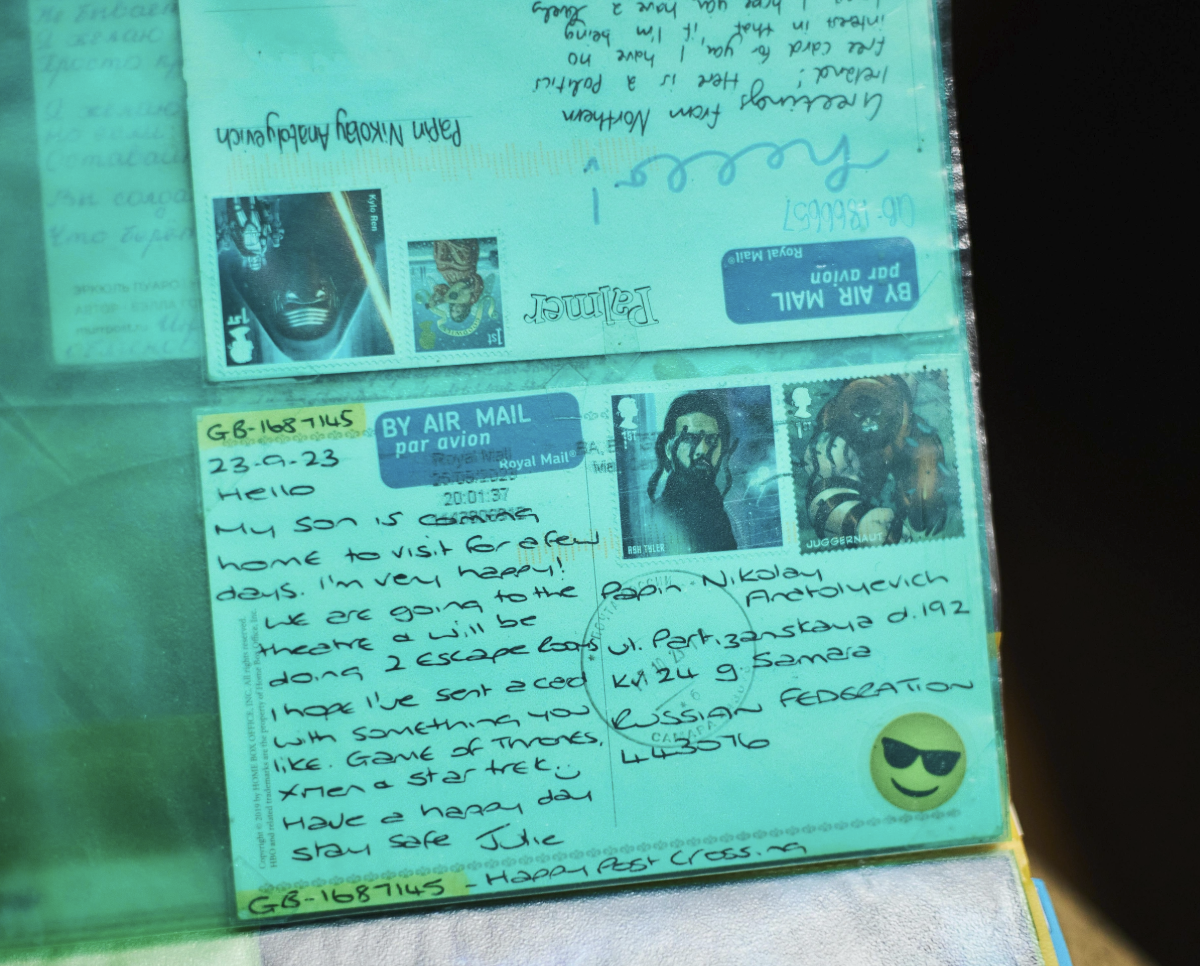 Не бывает
Я желаю
Просто
Я желаю
Ви солда
Что
lovely
interest in that, if I'm being
free card for you, I have no
Ireland! Here is a politics
Greetings from Northern
hello!
GB-1866657
Papin Nikolay Anatolyevich
Kylo Ren
1st
Palmer
BY AIR MAIL
par avion
Royal Mail®
GB-1687145
23-9-23
Hello
My son is coming
home to visit for a few
days. I'm very happy!
We are going to the
theatre & will be
doing 2 Escape Rooms
I hope I've sent a card
with something you
like. Game of Thrones,
Xmen & Star trek
Have a happy day
stay safe Julie
GB-1687145 - Happy Post Crossing
BY AIR MAIL
par avion
Royal Mail®
Royal Mail
20:01:37
1st
ASH TYLER
JUGGERNAUT
Papin Nikolay
Anatolyevich
ul. Partizanskaya d.192
kv 24 g Samara
RUSSIAN FEDERATION
443076
САМАРА
Copyright © 2019 by HOME BOX OFFICE, INC. All rights reserved.
HBO and related trademarks are the property of Home Box Office, Inc.